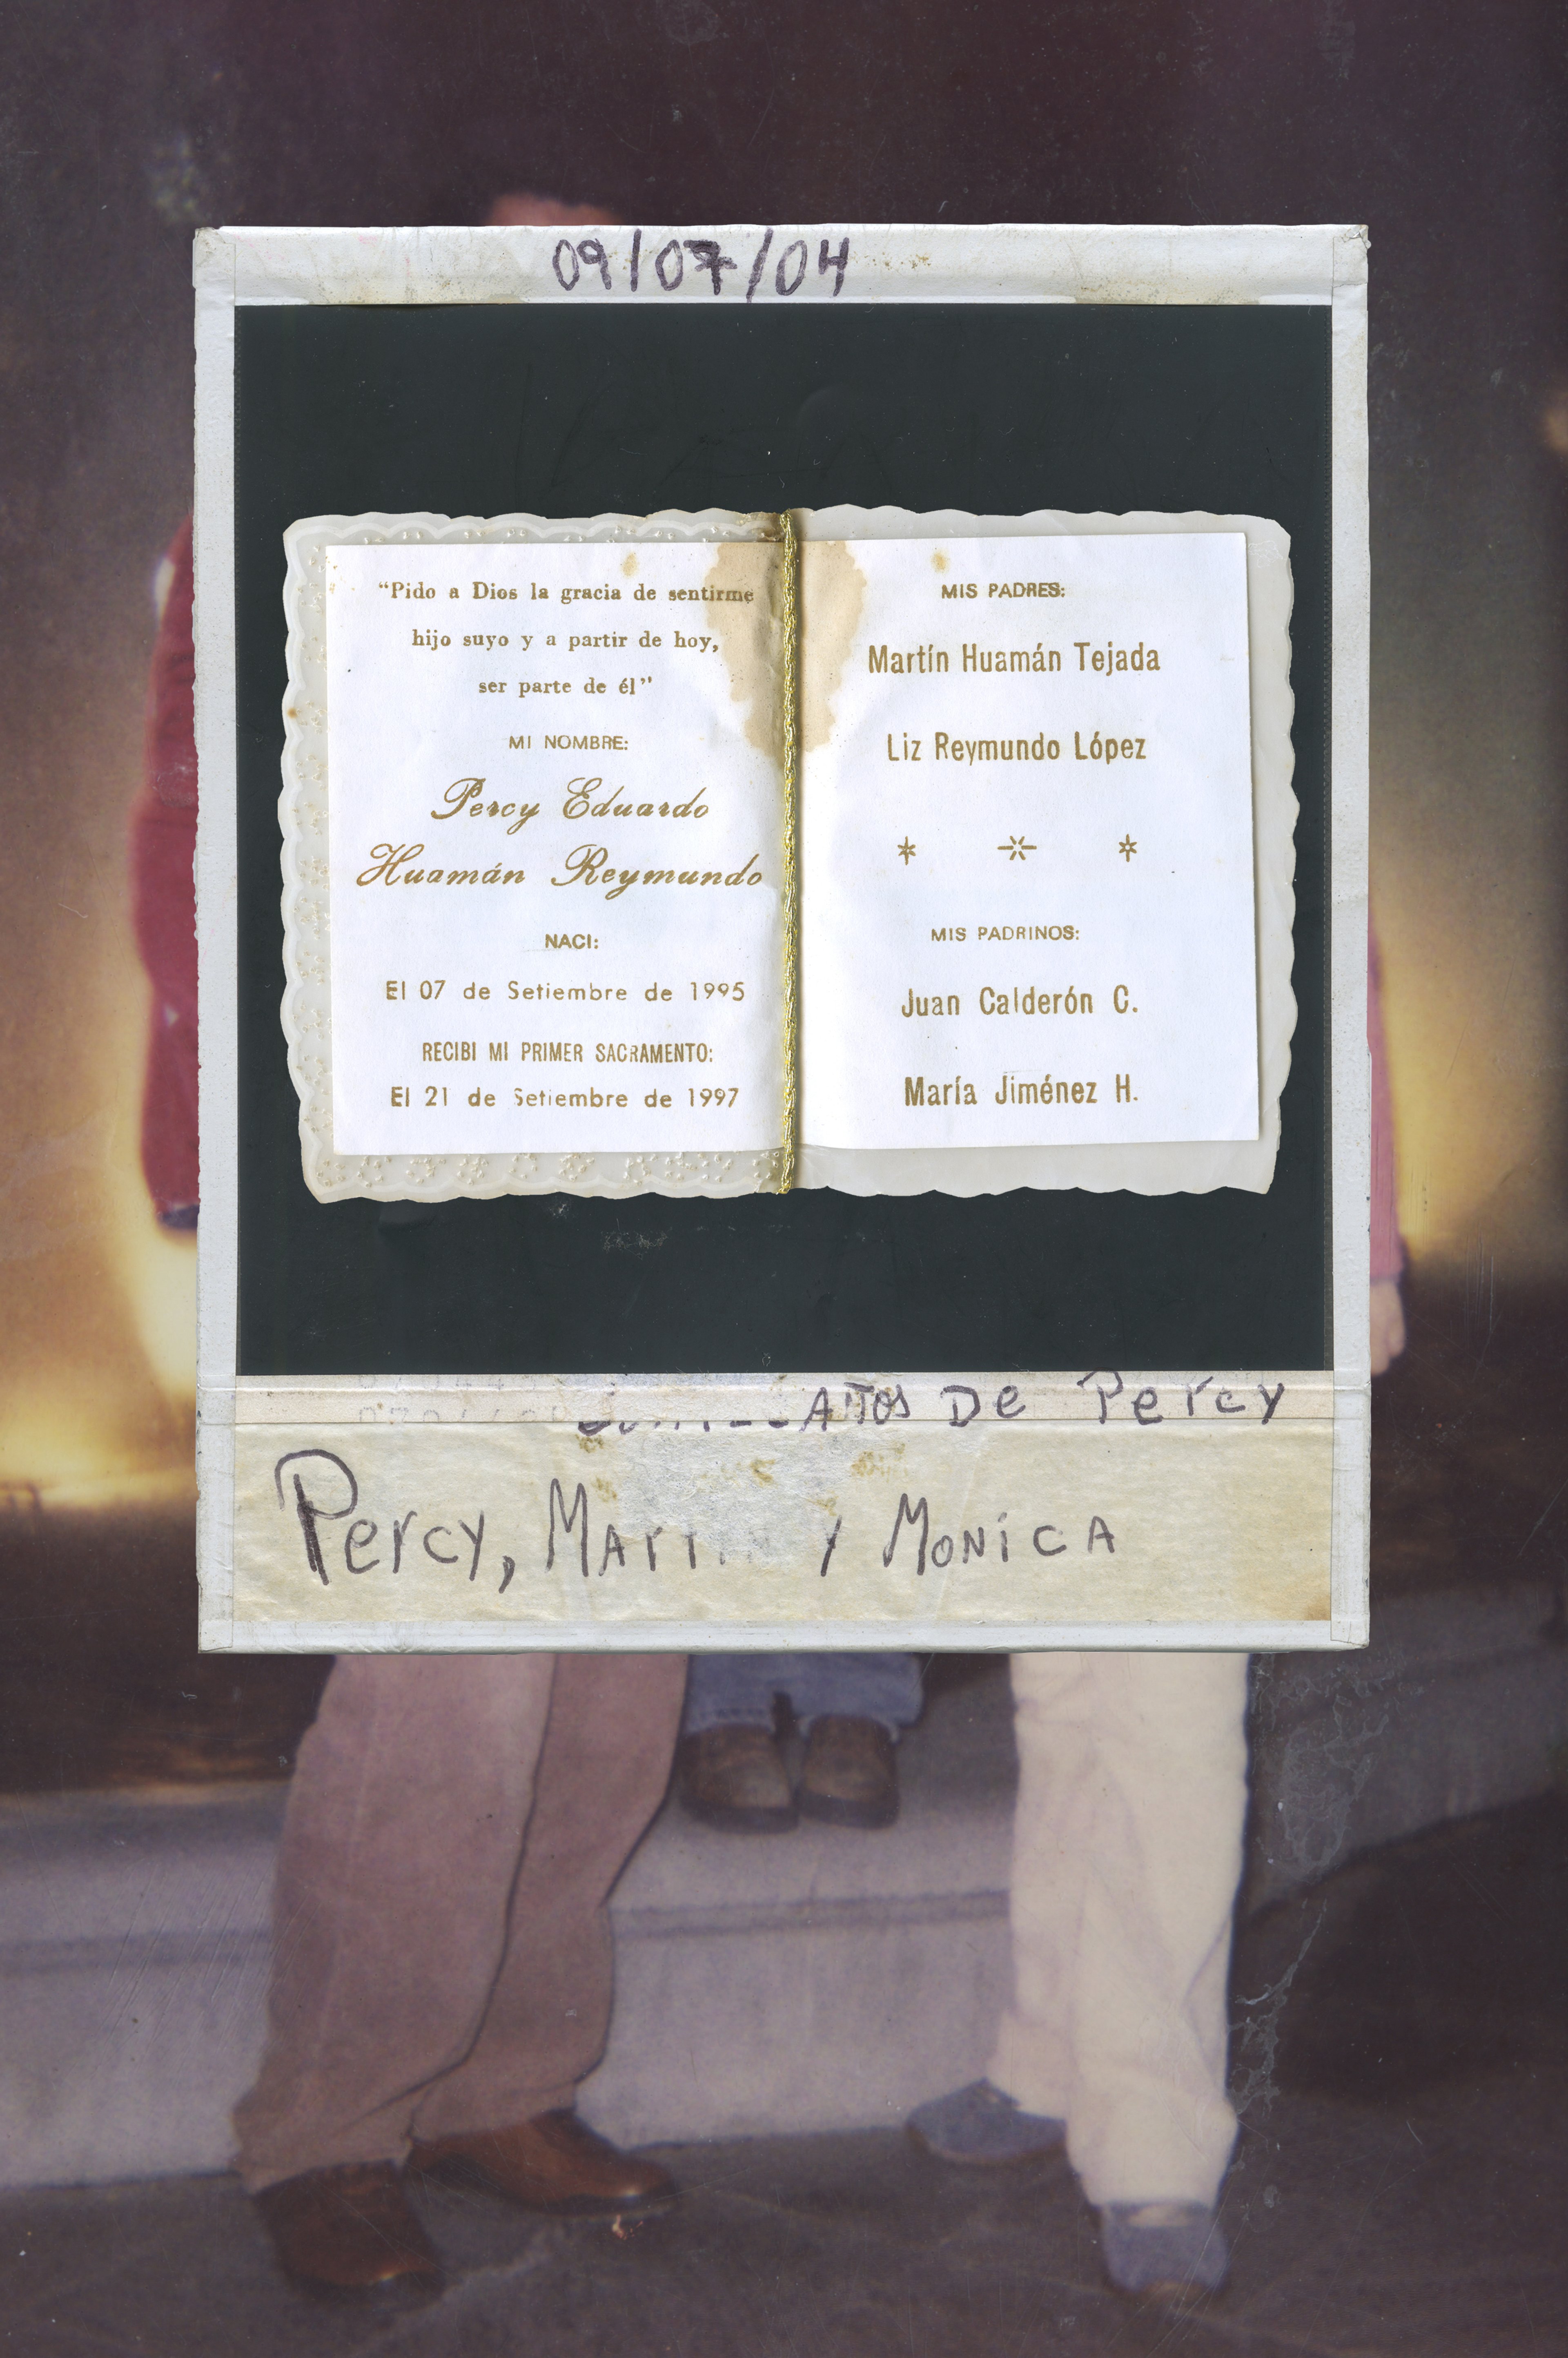 09/07/04
“Pido a Dios la gracia de sentirme
hijo suyo y a partir de hoy,
ser parte de él”
MI NOMBRE:
Percy Eduardo
Huamán Reymundo
NACI:
El 07 de Setiembre de 1995
RECIBI MI PRIMER SACRAMENTO:
El 21 de Setiembre de 1997
MIS PADRES:
Martín Huamán Tejada
Liz Reymundo López
MIS PADRINOS:
Juan Calderón C.
María Jiménez H.
DE Percy
Percy, y MONiCA